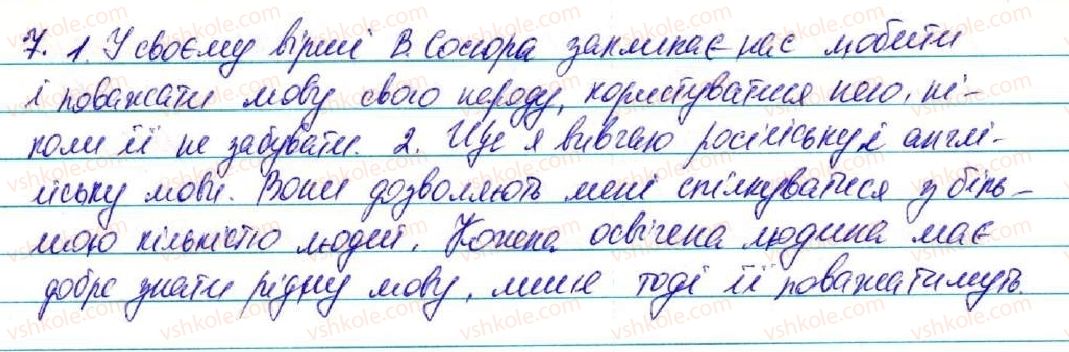 7. 1. У своєму вірші В. Сосюра закликає нас любити
і поважати мову свого народу, користуватися нею, ні-
коли її не забувати. 2. Ще я вивчаю російську і англі-
йську мови. Вони дозволяють мені спілкуватися з біль-
шою кількістю людей. Кожена освічена людина має
добре знати рідну мову, лише тоді її поважатимуть.